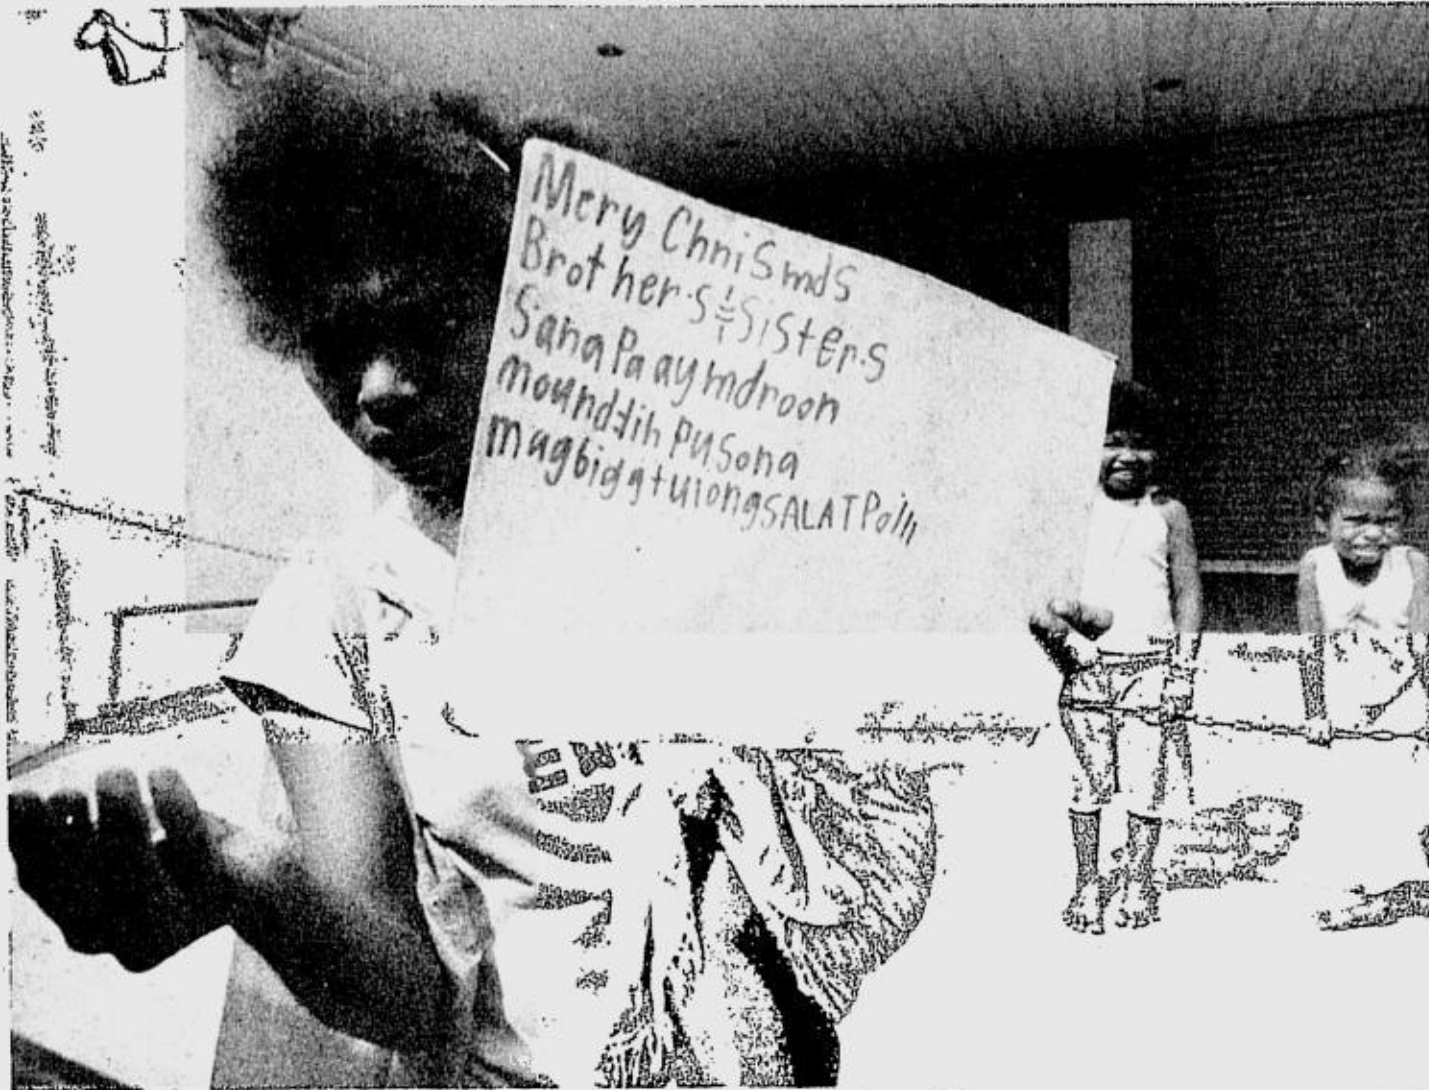 Mery ChniSmds
Brother.s & SiSter.s
Sana Pa ay mdroon
moundtih PuSona
magbigatulongSALATPo!!!